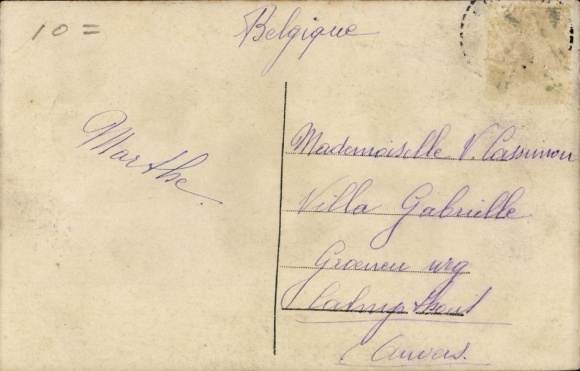 10 =
Belgique
Marthe.
Mademoiselle V. Cassimon
Villa Gabrielle
Groenen weg
Calmpthout
Anvers.